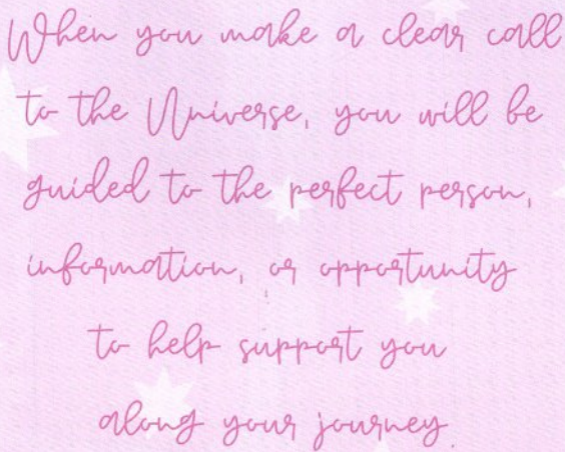 When you make a clear call
to the Universe, you will be
guided to the perfect person,
information, or opportunity
to help support you
along your journey.